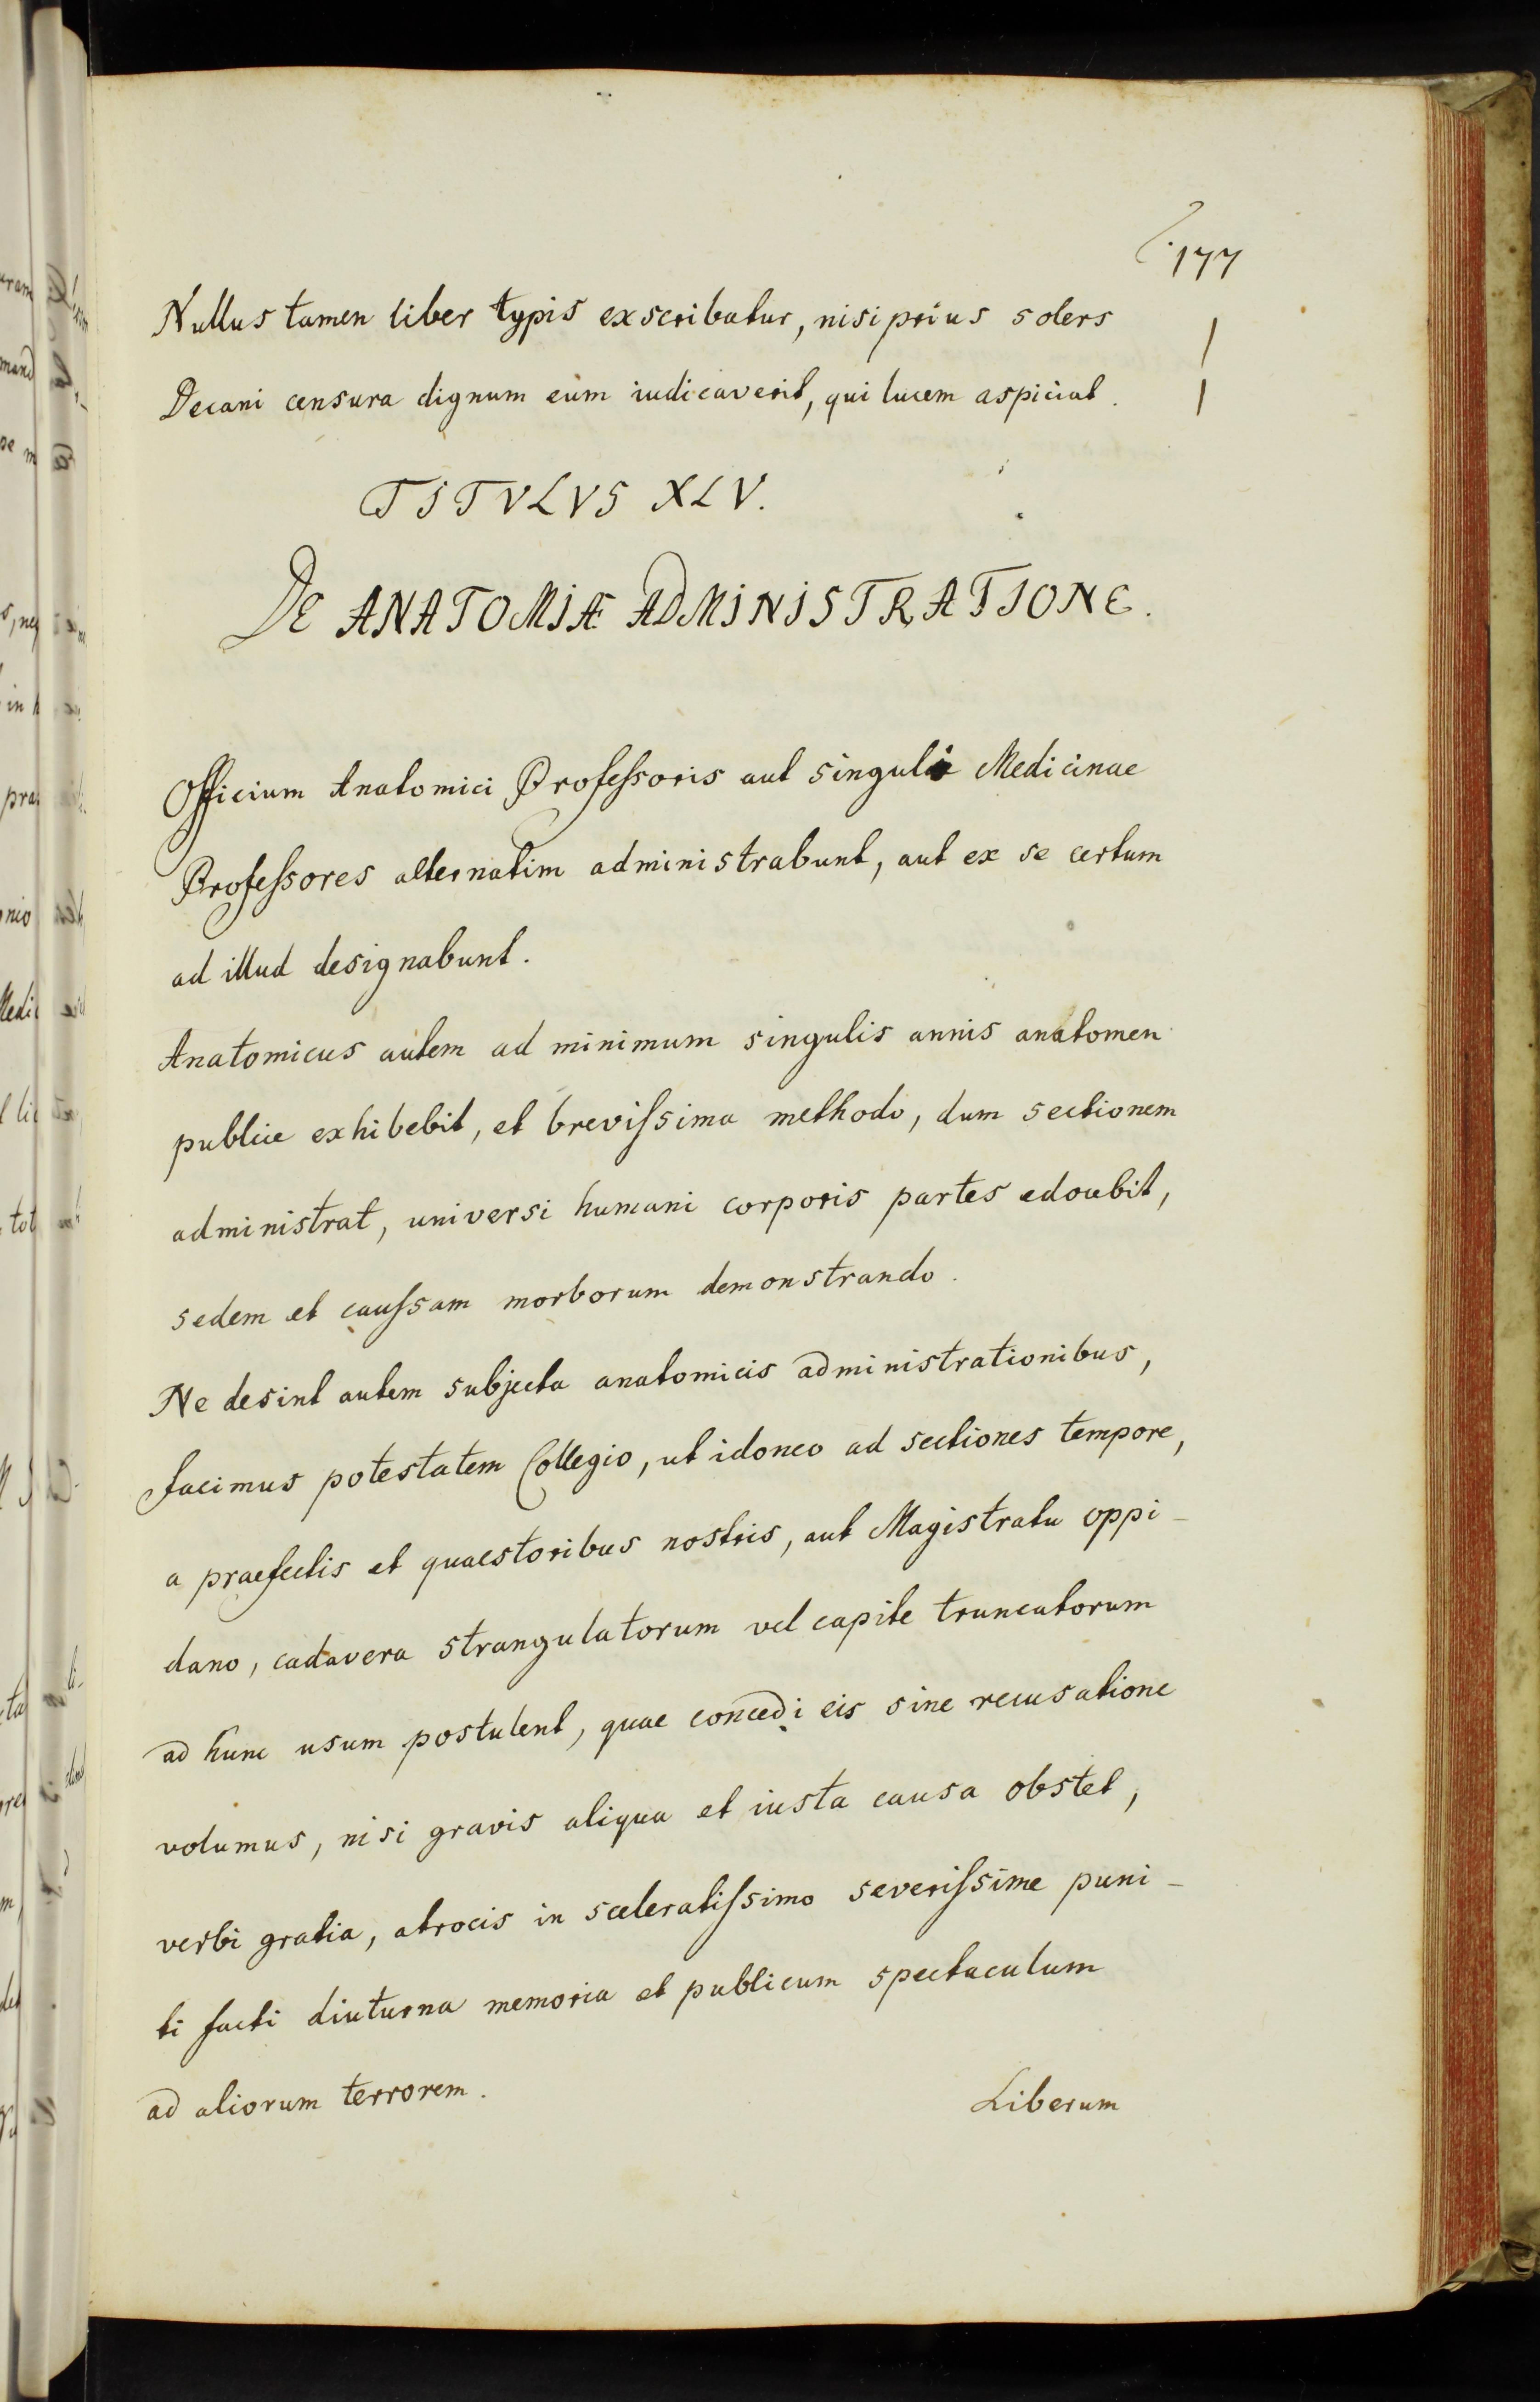 177
Nullus tamen liber typis exscribatur, nisi prius solers
Decani censura dignum eum iudicaverit, qui lucem aspiciat.
TITVLVS XLV.
DE ANATOMIÆ ADMINISTRATIONE.
Officium Anatomici Profeſsoris aut singuli Medicinae
Profeſsores alternatim administrabunt, aut ex se certum
ad illud designabunt.
Anatomicus autem ad minimum singulis annis anatomen
publice exhibebit, et breviſsima methodo, dum sectionem
administrat, universi humani corporis partes edocebit,
sedem et cauſsam morborum demonstrando.
Ne desint autem subjecta anatomicis administrationibus,
facimus potestatem Collegio, ut idoneo ad sectiones tempore,
a praefectis et quaestoribus nostris, aut Magistratu oppi-
dano, cadavera strangulatorum vel capite truncatorum
ad hunc usum postulent, quae concedi eis sine recusatione
volumus, nisi gravis aliqua et iusta causa obstet,
verbi gratia, atrocis in sceleratiſsimo severiſsime puni-
ti facti diuturna memoria et publicum spectaculum
ad aliorum terrorem.
Liberum